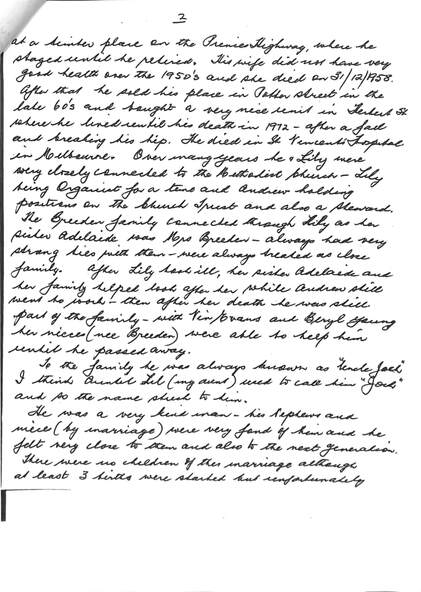 2
at a timber place on the Princes Highway, where he
stayed until he retired. His wife did not have very
good health over the 1950's and she died on 31/12/1958.
After that he sold his place in Potter Street in the
late 60's and bought a very nice unit in Herbert St
where he lived until his death in 1972 - after a fall
and breaking his hip. He died in St Vincents Hospital
in Melbourne. Over many years he & Lily were
very closely connected to the Methodist Church - Lily
being Organist for a time and Andrew holding
positions on the Church Trust and also a Steward.
The Breeden family connected through Lily as her
sister Adelaide was Mrs Breeden - always had very
strong ties with them - were always treated as close
family. After Lily took ill, her sister Adelaide and
her family helped look after her while Andrew still
went to work - then after her death he was still
part of the family - with Evans and Beryl Young
her nieces (nee Breeden) were able to help him
until he passed away.
To the family he was always known as "Uncle Jock"
I think Auntie Lil (my aunt) used to call him "Jock"
and so the name stuck to him.
He was a very kind man - his Nephews and
niece (by marriage) were very fond of him and he
felt very close to them and also to the next generation.
There were no children of this marriage although
at least 3 births were started but unfortunately